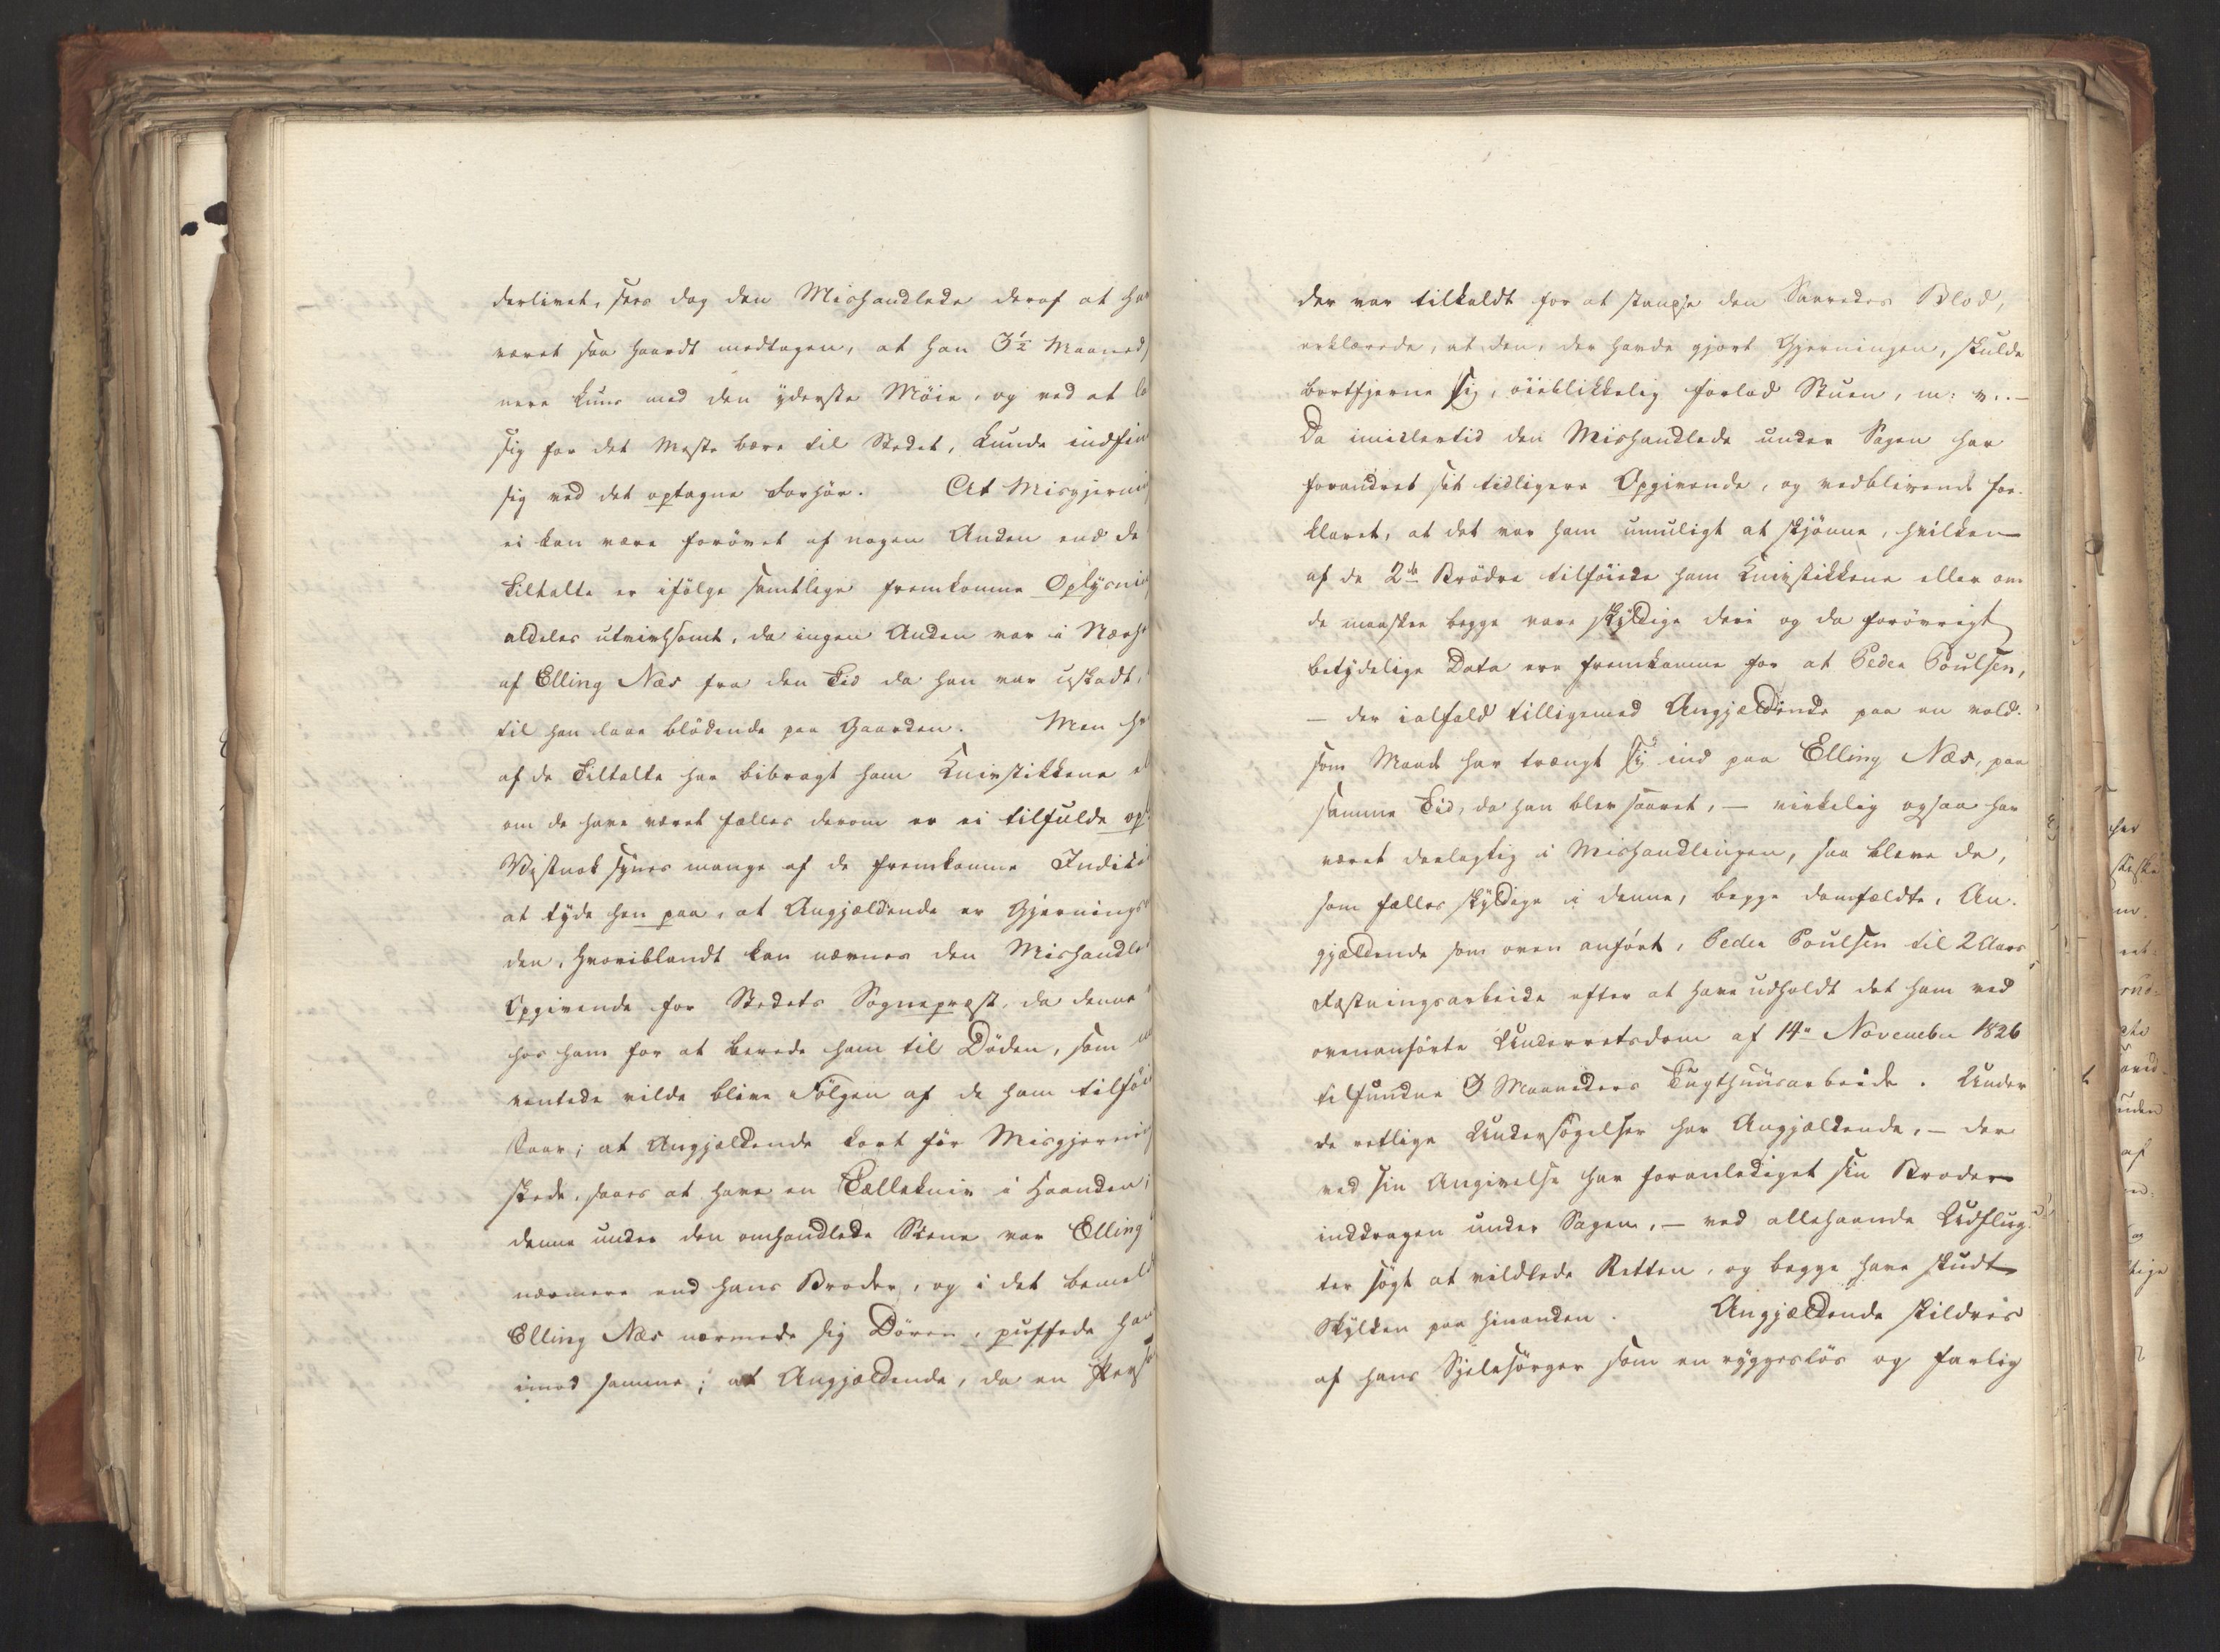 derlivet, sees dog den Mishandlede deraf at ha
været saa haardt medtagen, at han 3½ Maaned
nere kuns med den yderste Møie, og ved at la
sig for det Meste bære til Stedet, kunde indfin
sig ved det optagne Forhör. At Misgjernin
ei kan være forövet af nogen Anden end de
Tiltalte er ifölge samtlige fremkomne Oplysnin
aldeles utvivlsomt, da ingen Anden var i Nærh
af Elling Næs fra den Tid da han var uskadt,
til han laae blödende paa Gaarden. Men hv
af de Tiltalte har bibragt ham Knivstikkene el
om de have været fælles derom er ei tilfulde op
Vistnok synes mange af de fremkomne Indici
at tyde hen paa, at Angjældende er Gjernings
den, hvoriblandt kan nævnes den Mishandle
Opgivende for Stedets Sognepræst, da denne
hos ham for at berede ham til Döden, som
ventede vilde blive Fölgen af de ham tilföi
Saar; at Angjældende kort för Misgjernin
skede, saaes at have en Tællekniv i Haanden;
denne under den omhandlede Scene var Elling
nærmere end hans Broder, og i det bemeld
Elling Næs nærmede sig Dören, puffede ha
imod samme; at Angjældende, da en Perso
der var tilkaldt for at standse den Saaredes Blod,
erklærede, at den, der havde gjort Gjerningen, skulde
bortfjerne sig, öieblikkelig forlod Stuen, m: v..–
Da imidlertid den Mishandlede under Sagen har
forandret sit tidligere Opgivende, og vedblivende for-
klaret, at det var ham umuligt at skjönne, hvilken
af de 2de Brödre tilföiede ham Knivstikkene eller om
de maaskee begge vare skyldige deri og da forövrigt
betydelige Data ere fremkomne for at Peder Poulsen,
– der ialfald tilligemed Angjældende paa en vold-
som Maade har trængt sig ind paa Elling Næs, paa
samme Tid, da han blev saaret, – virkelig ogsaa har
været deelagtig i Mishandlingen, saa bleve de,
som fælles skyldige i denne, begge domfældte, An-
gjældende som oven anfört, Peder Poulsen til 2 Aars
Fæstningsarbeide efter at have udholdt det ham ved
ovenanförte Underretsdom af 14de November 1826
tilfundne Maaneders Tugthuusarbeide. Under
de retlige Undersögelser har Angjældende, – der
ved sin Angivelse har foranlediget sin Broder
inddragen under Sagen, – ved allehaande Udflug-
ter sögt at vildlede Retten, og begge have skudt
Skylden paa hinanden. Angjældende skildres
af hans Sjelesörger som en ryggeslös og farlig